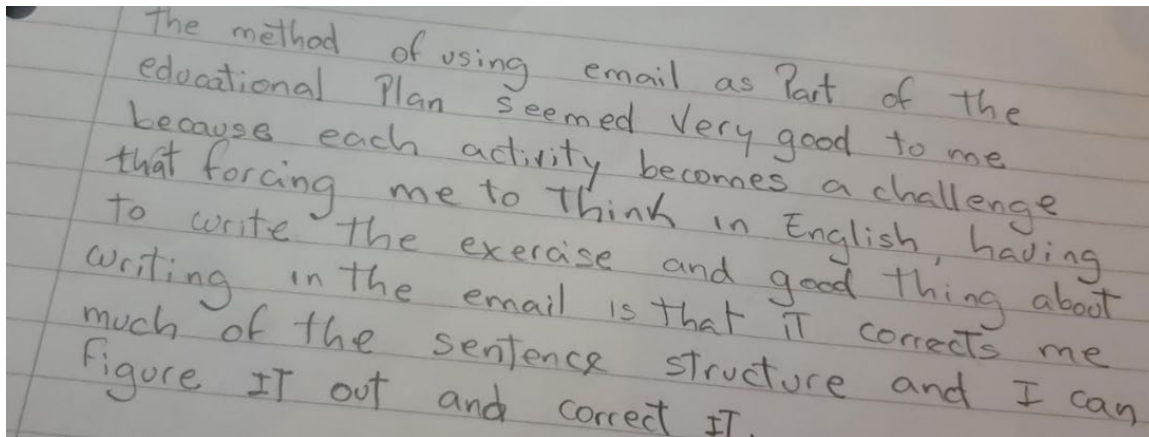 the method of using email as Part of the
educational Plan seemed Very good to me
because each activity becomes a challenge
that forcing me to Think in English, having
to write the exercise and good thing about
writing in the email is that iT corrects me
much of the sentence structure and I can
figure IT out and correct IT.